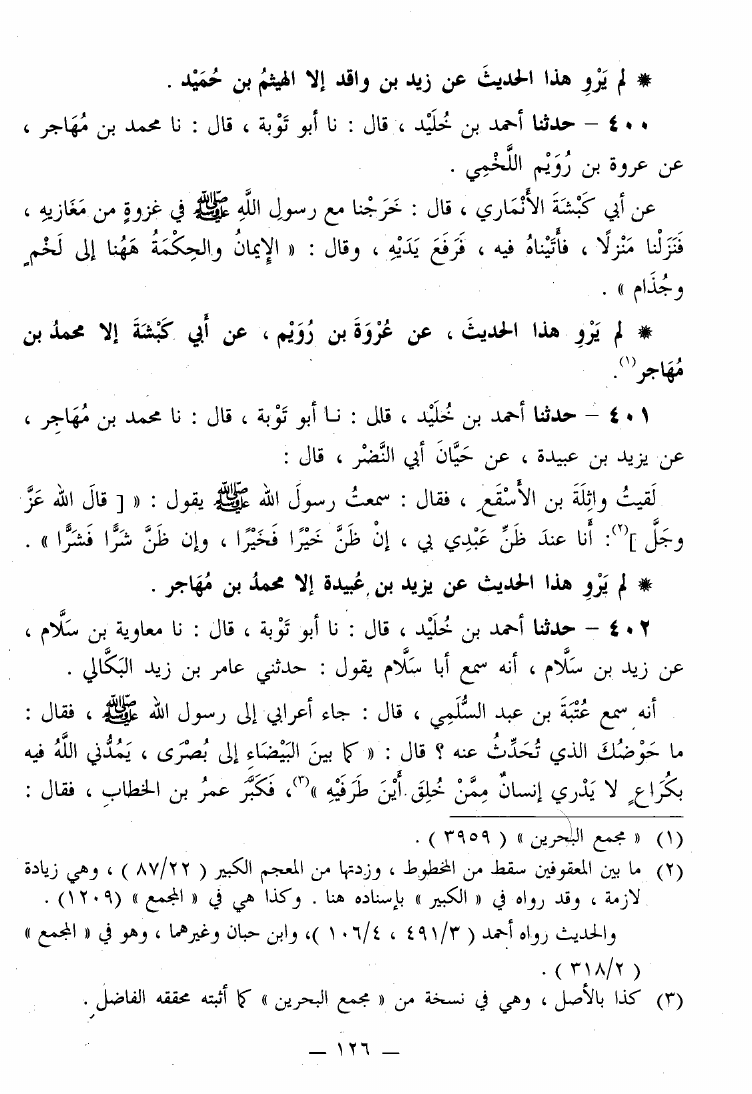 * لم يَرْوِ هذا الحديثَ عن زيد بن واقد إلا الهيثمُ بن حُمَيْد .
٤٠٠ – حدثنا أحمد بن خُلَيْد ، قال : نا أبو تَوْبة ، قال : نا محمد بن مُهَاجر ،
عن عروة بن رُوَيْم اللَّخْمِي .
عن أبي كَبْشَةَ الأَنْماري ، قال : خَرَجْنا مع رسولِ اللَّهِ ﷺ في غزوةٍ من مَغَازيهِ ،
فَنَزَلْنا مَنْزلًا ، فأَتَيْناهُ فيه ، فَرفَعَ يَدَيْهِ ، وقال : « الإيمانُ والحِكْمَةُ هَهُنا إلى لَخْمٍ
وجُذَام » .
* لم يَرْوِ هذا الحديثَ ، عن عُرْوَةَ بن رُوَيْم ، عن أبي كَبْشَةَ إلا محمدُ بن
مُهَاجر(١).
٤٠١ – حدثنا أحمد بن خُلَيْد ، قلل : نـا أبو تَوْبة ، قال : نا محمد بن مُهَاجِر ،
عن يزيد بن عبيدة ، عن حَيَّانَ أبي النَّضْر ، قال :
لَقيتُ واثِلَةَ بن الأَسْقَعِ ، فقال : سمعتُ رسولَ الله ﷺ يقول : « [ قالَ الله عَزَّ
وجَلَّ ](٢): أَنا عندَ ظَنِّ عَبْدِي بي ، إنْ ظَنَّ خَيْرًا فَخَيْرًا ، وإن ظَنَّ شرًّا فَشرًّا » .
* لم يَرْوِ هذا الحديث عن يزيد بن عُبيدة إلا محمدُ بن مُهَاجر .
٤٠٢ – حدثنا أحمد بن خُلَيْد ، قال : نا أبو تَوْبة ، قال : نا معاوية بن سَلَّام ،
عن زيد بن سَلَّام ، أنه سمع أبا سَلَّام يقول : حدثني عامر بن زيد البَكَّالي .
أنه سمع عُتْبَةَ بن عبد السُّلَمِي ، قال : جاء أعرابي إلى رسول الله ﷺ ، فقال :
ما حَوْضُكَ الذي تُحَدِّثُ عنه ؟ قال : « كما بينَ البَيْضَاءِ إلى بُصْرَى ، يَمُدُّني اللَّهُ فيه
بكُراعٍ لا يَدْري إنسانٌ مِمَّنْ خُلِقَ أَيْنَ طَرفَيْهِ »(٣)، فَكَبَّر عمرُ بن الخطاب ، فقال :
(١) « مجمع البحرين » ( ٣٩٥٩ ) .
(٢) ما بين المعقوفين سقط من المخطوط ، وزدتها من المعجم الكبير ( ٨٧/٢٢ ) ، وهي زيادة
لازمة ، وقد رواه في « الكبير » بإسناده هنا . وكذا هي في « المجمع » (١٢٠٩) .
والحديث رواه أحمد ( ٤٩١/٣ ، ١٠٦/٤ )، وابن حبان وغيرهما ، وهو في « المجمع »
( ٣١٨/٢ ) .
(٣) كذا بالأصل ، وهي في نسخة من « مجمع البحرين » كما أثبته محققه الفاضل .
— ١٢٦ —